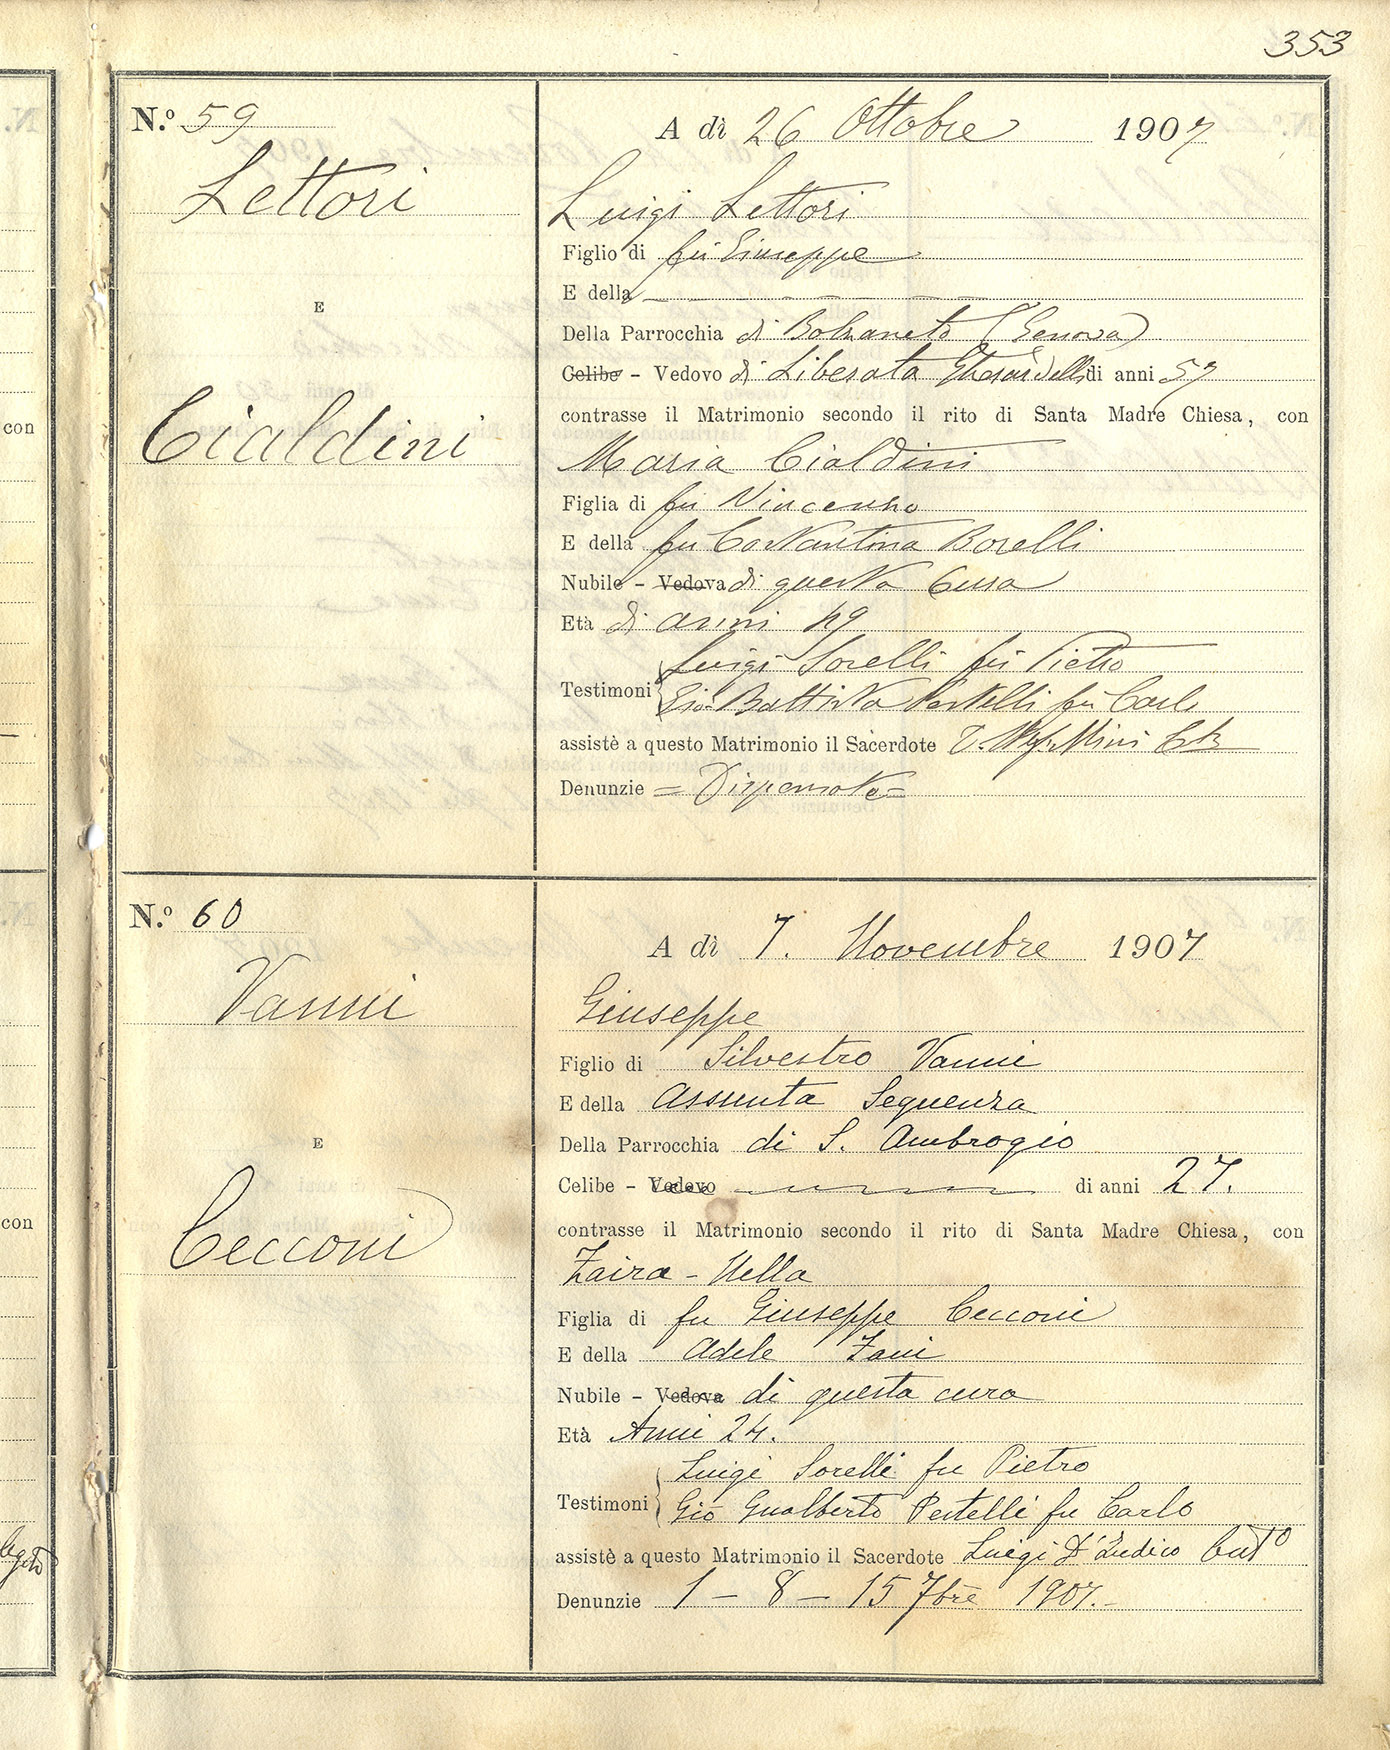 353
N.º 59
Lettori
E
Cialdini
A dì 26 Ottobre 1907
Luigi Lettori
Figlio di fu Giuseppe
E della
Della Parrocchia di Bolzaneto (Genova)
Celibe - Vedovo di Liberata Gherardelli di anni 57
contrasse il Matrimonio secondo il rito di Santa Madre Chiesa, con
Maria Cialdini
Figlia di fu Vincenzo
E della fu Costantina Borelli
Nubile - Vedova di questa Cura
Età di anni 49
Luigi Sorelli fu Pietro
Testimoni
Gio: Battista Pestelli fu Carlo
assistè a questo Matrimonio il Sacerdote
Denunzie = Dispensate =
N.º 60
Vanni
E
Cecconi
A dì 7. Novembre 1907
Giuseppe
Figlio di Silvestro Vanni
E della Assunta Sequenza
Della Parrocchia di S. Ambrogio
Celibe - Vedovo di anni 27.
contrasse il Matrimonio secondo il rito di Santa Madre Chiesa, con
Zaira - Nella
Figlia di fu Giuseppe Cecconi
E della Adele Zani
Nubile - Vedova di questa cura
Età Anni 24.
Luigi Sorelli fu Pietro
Testimoni
Gio Gualberto Pestelli fu Carlo
assistè a questo Matrimonio il Sacerdote Luigi D'Indico Cur.to
Denunzie 1 - 8 - 15 7bre 1907. -
con
con